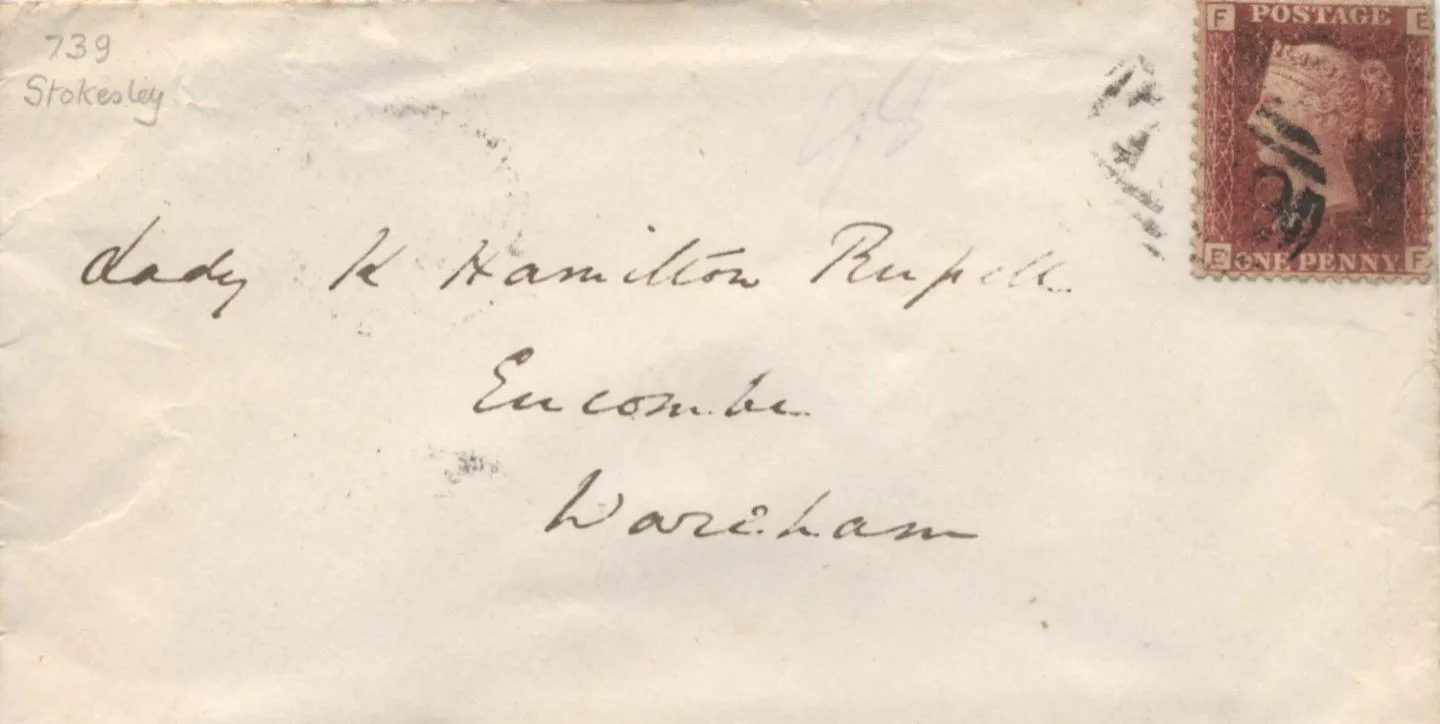 739
Stokesley
98
F POSTAGE E
E ONE PENNY F
Lady K Hamilton Russell
Encombe
Wareham